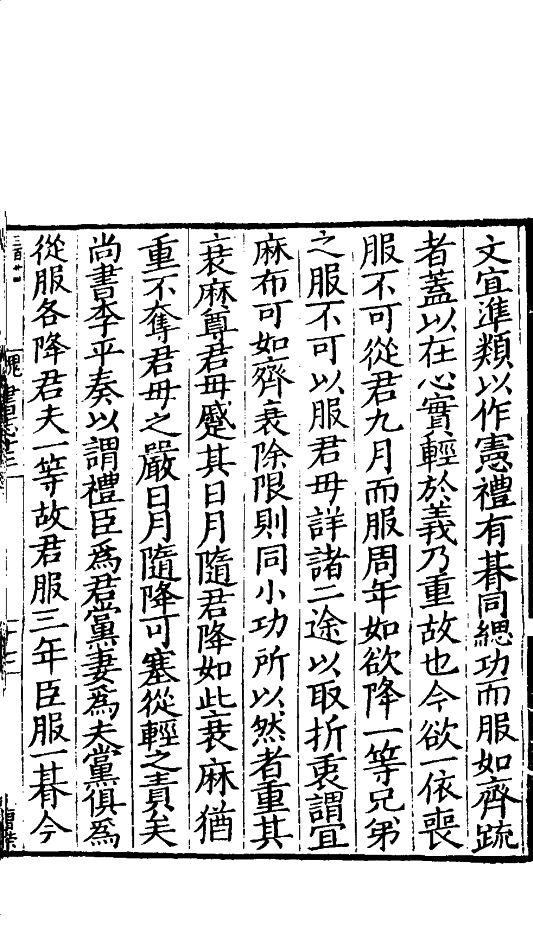 文宜準類以作憲禮有朞同緦功而服如齊䟽
者蓋以在心實輕於義乃重故也今欲一依喪
服不可從君九月而服周年如欲降一等兄弟
之服不可以服君毋詳諸二途以取折衷謂宜
麻布可如齊衰除限則同小功所以然者重其
衰麻尊君毋蹙其日月隨君降如此衰麻猶
重不奪君毋之嚴日月隨降可塞從輕之責矣
尚書李平奏以謂禮臣爲君黨妻爲夫黨俱爲
從服各降君夫一等故君服三年臣服一朞今